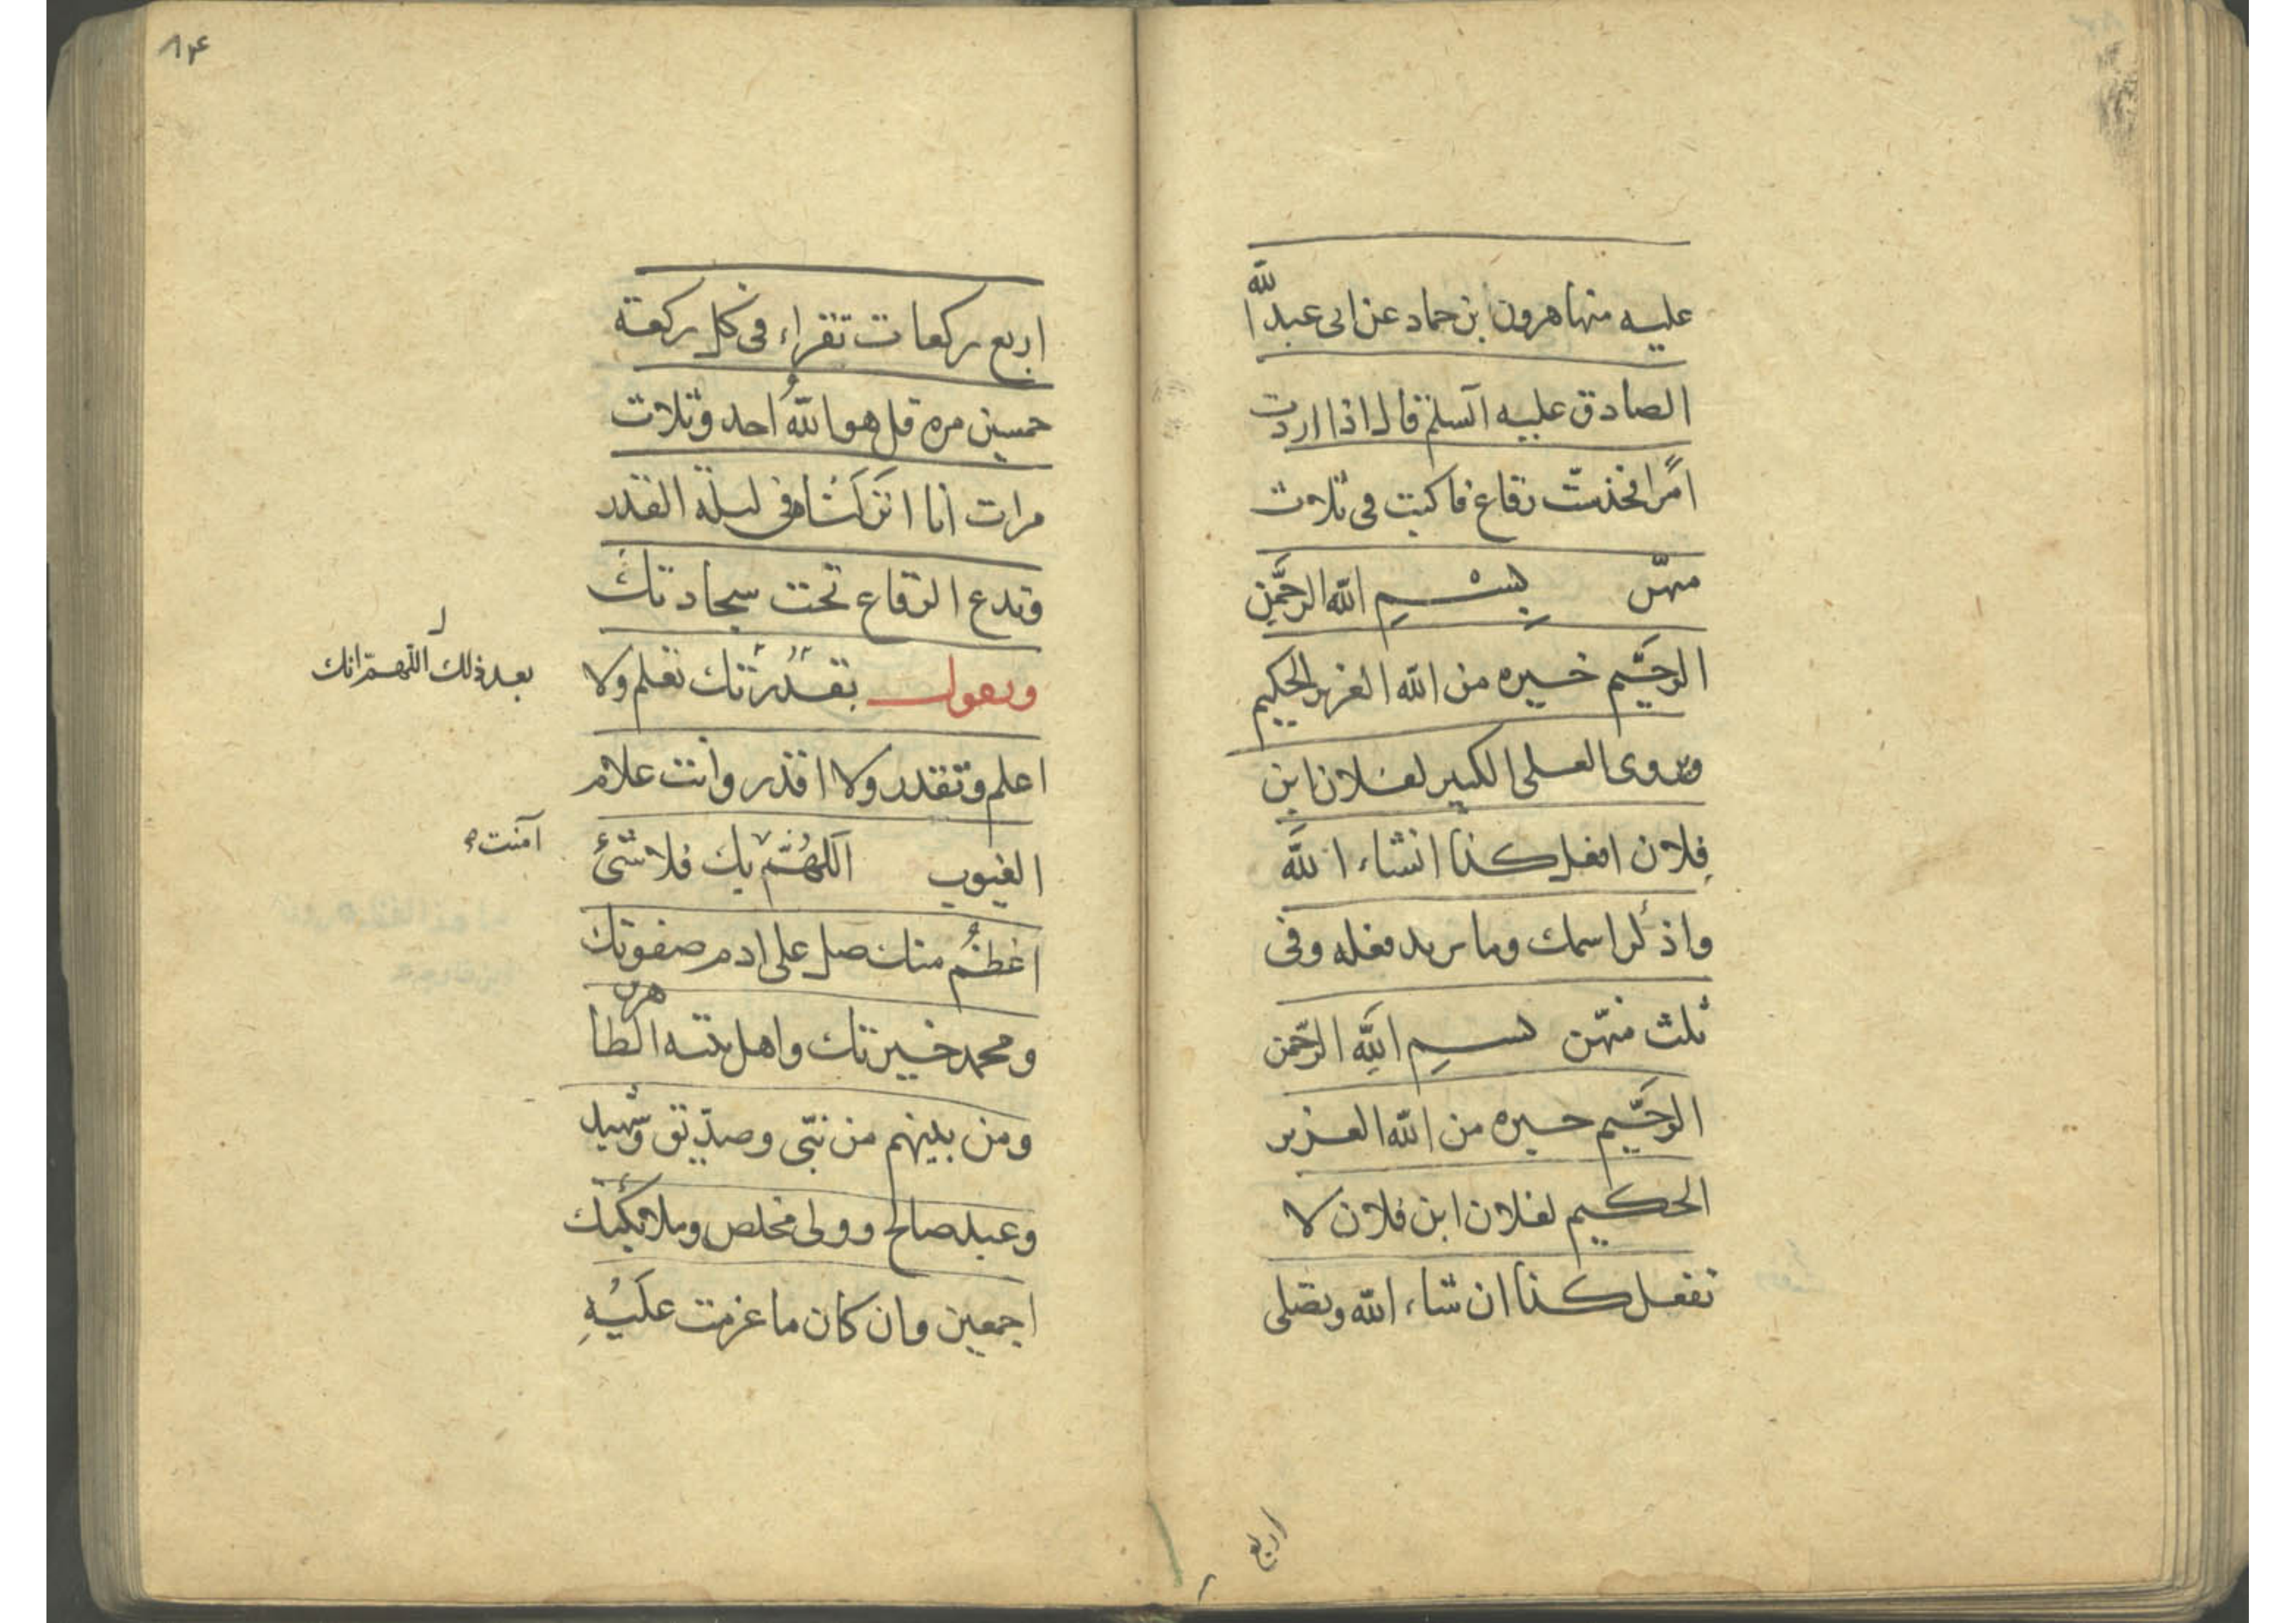 عليه منها هرون بن حماد عن ابى عبد الله
الصادق عليه السلم قال اذا اردت
امرا فخذ ست رقاع فاكتب فى ثلاث
منهن بسم الله الرحمن
الرحيم خيره من الله العزيز الحكيم
ويروى العلى الكبير لفلان ابن
فلان افعل كذا انشاء الله
واذكر اسمك وما تريد فعله وفى
ثلث منهن بسم الله الرحمن
الرحيم خيره من الله العزيز
الحكيم لفلان ابن فلان لا
تفعل كذا ان شاء الله وتصلى
اربع
٨٤
اربع ركعات تقراء فى كل ركعة
خمسين مره قل هو الله احد وثلاث
مرات انا انزلناه فى ليلة القدر
وتدع الرقاع تحت سجادتك
وتقول بقدرتك تعلم ولا
بعد ذلك اللهم انك
اعلم وتقدر ولا اقدر وانت علام
الغيوب اللهم بك فلا شئ
آمنت
اعظم منك صل على ادم صفوتك
ومحمد خيرتك واهل بيته الطاهرين
ومن بينهم من نبى وصديق وشهيد
وعبد صالح وولى مخلص وملائكتك
اجمعين وان كان ما عزمت عليه